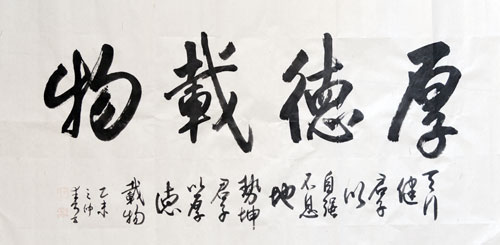 厚德載物
天行
健
君子
以
自強
不息
地
勢坤
君子
以厚
德
載物
乙未
之仲